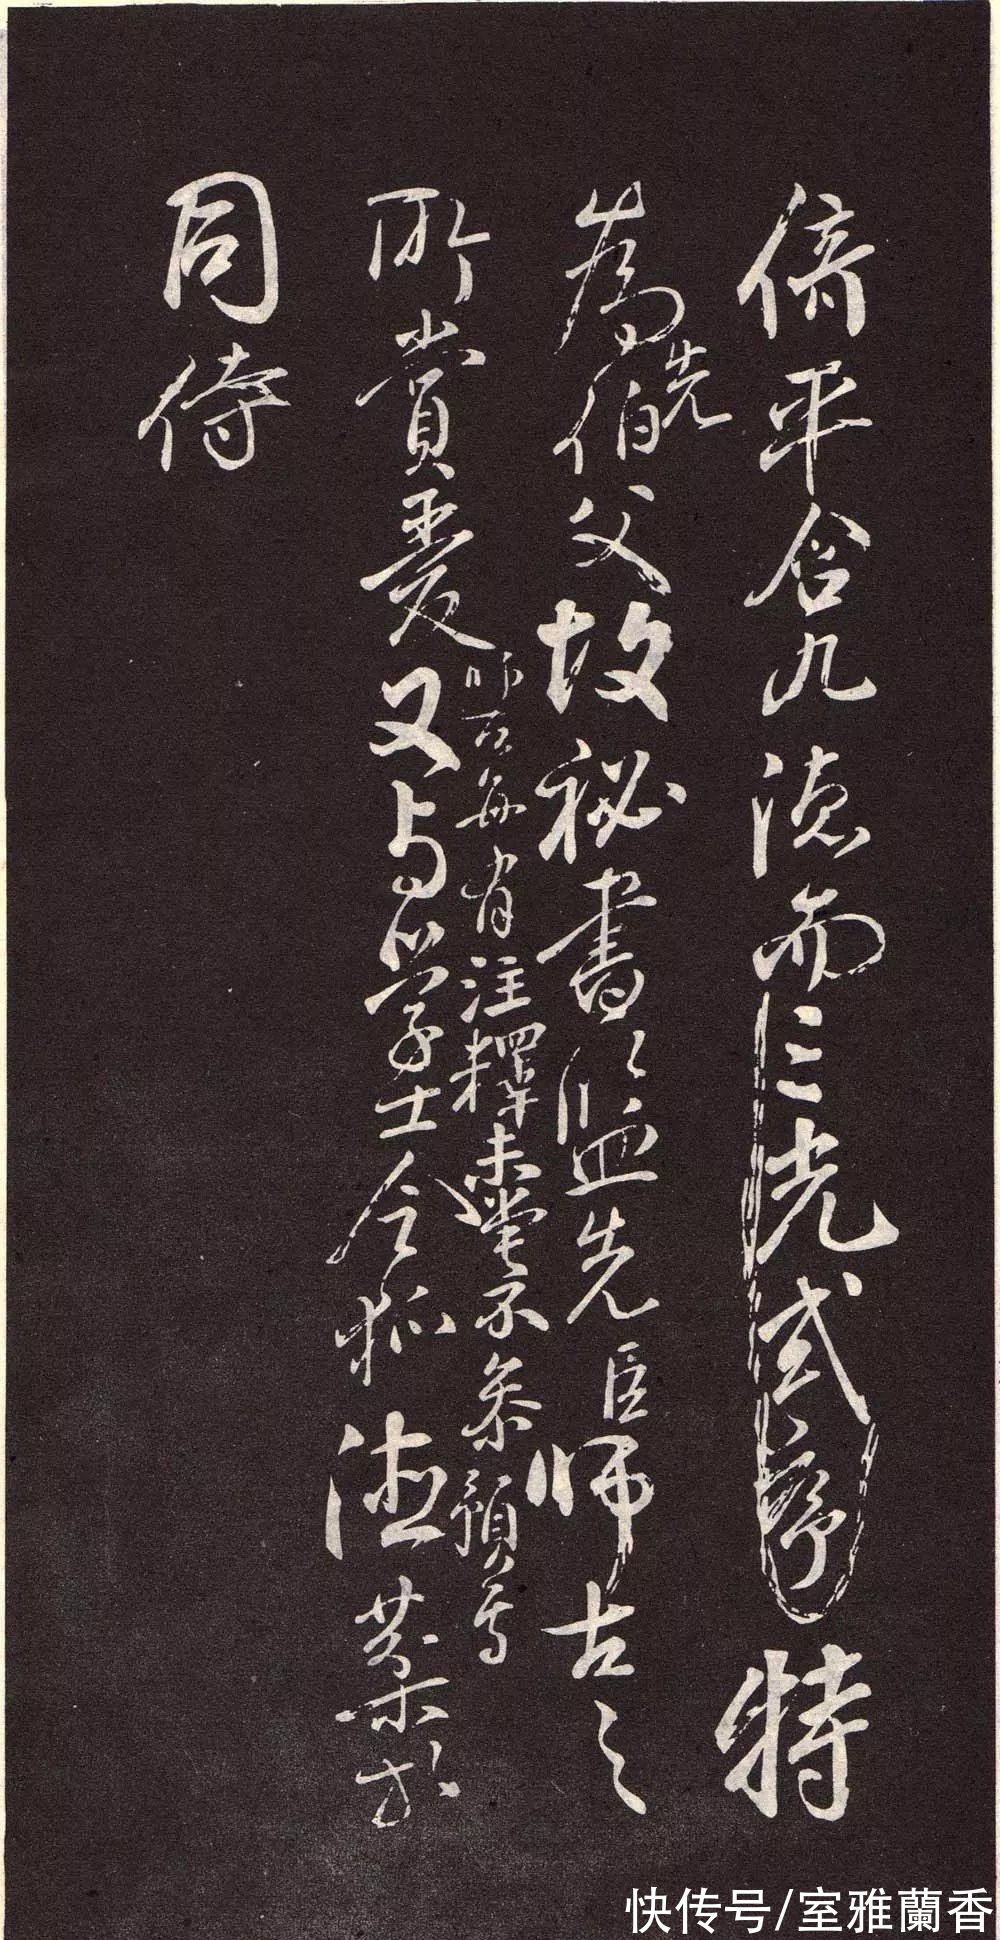 平含九德而三光式序特
為先伯父故秘書監先臣師古之
師古每有注釋未嘗不參預焉
所賞愛又与學士令狐德棻於
同侍
快传号/室雅蘭香